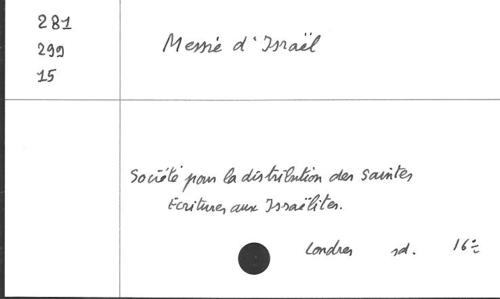 281
299
15
Messie d'Israël
Société pour la distribution des saintes
Ecritures aux Israëlites.
Londres sd. 16º